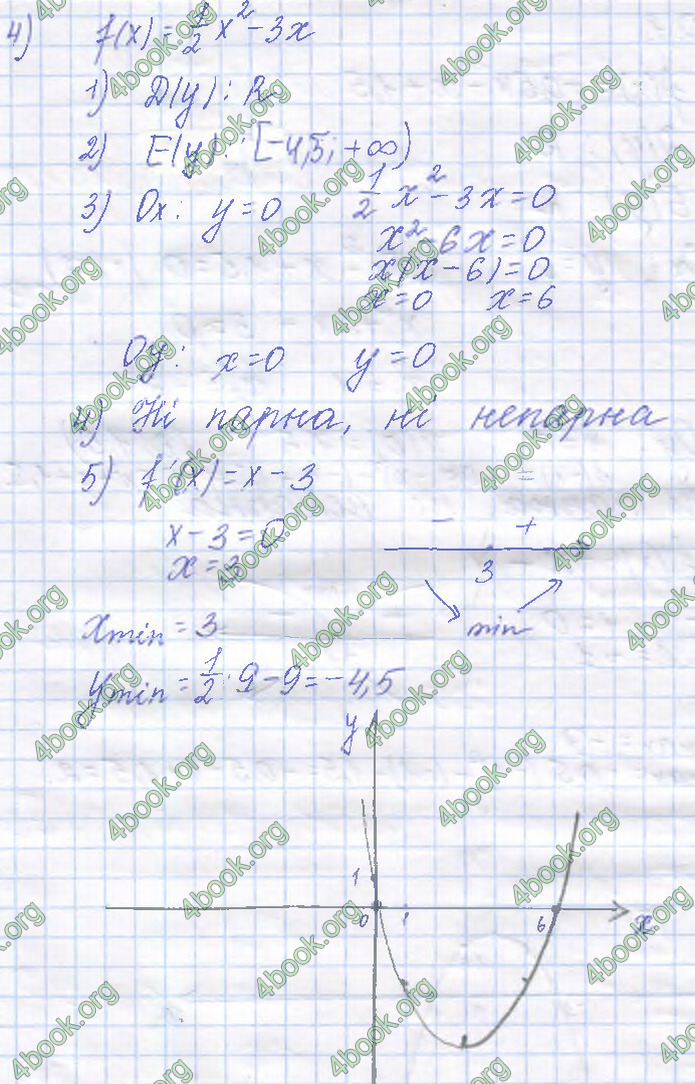 4) f(x) = 1/2 x² - 3x
1) D(y): R
2) E(y): [-4,5; +∞)
3) Ox: y = 0 1/2 x² - 3x = 0
x² - 6x = 0
x(x - 6) = 0
x = 0 x = 6
Oy: x = 0 y = 0
4) Ні парна, ні непарна
5) f'(x) = x - 3
x - 3 = 0
x = 3
- +
3
min
x min = 3
y min = 1/2 · 9 - 9 = -4,5
y
1
0 1 6 x
4book.org